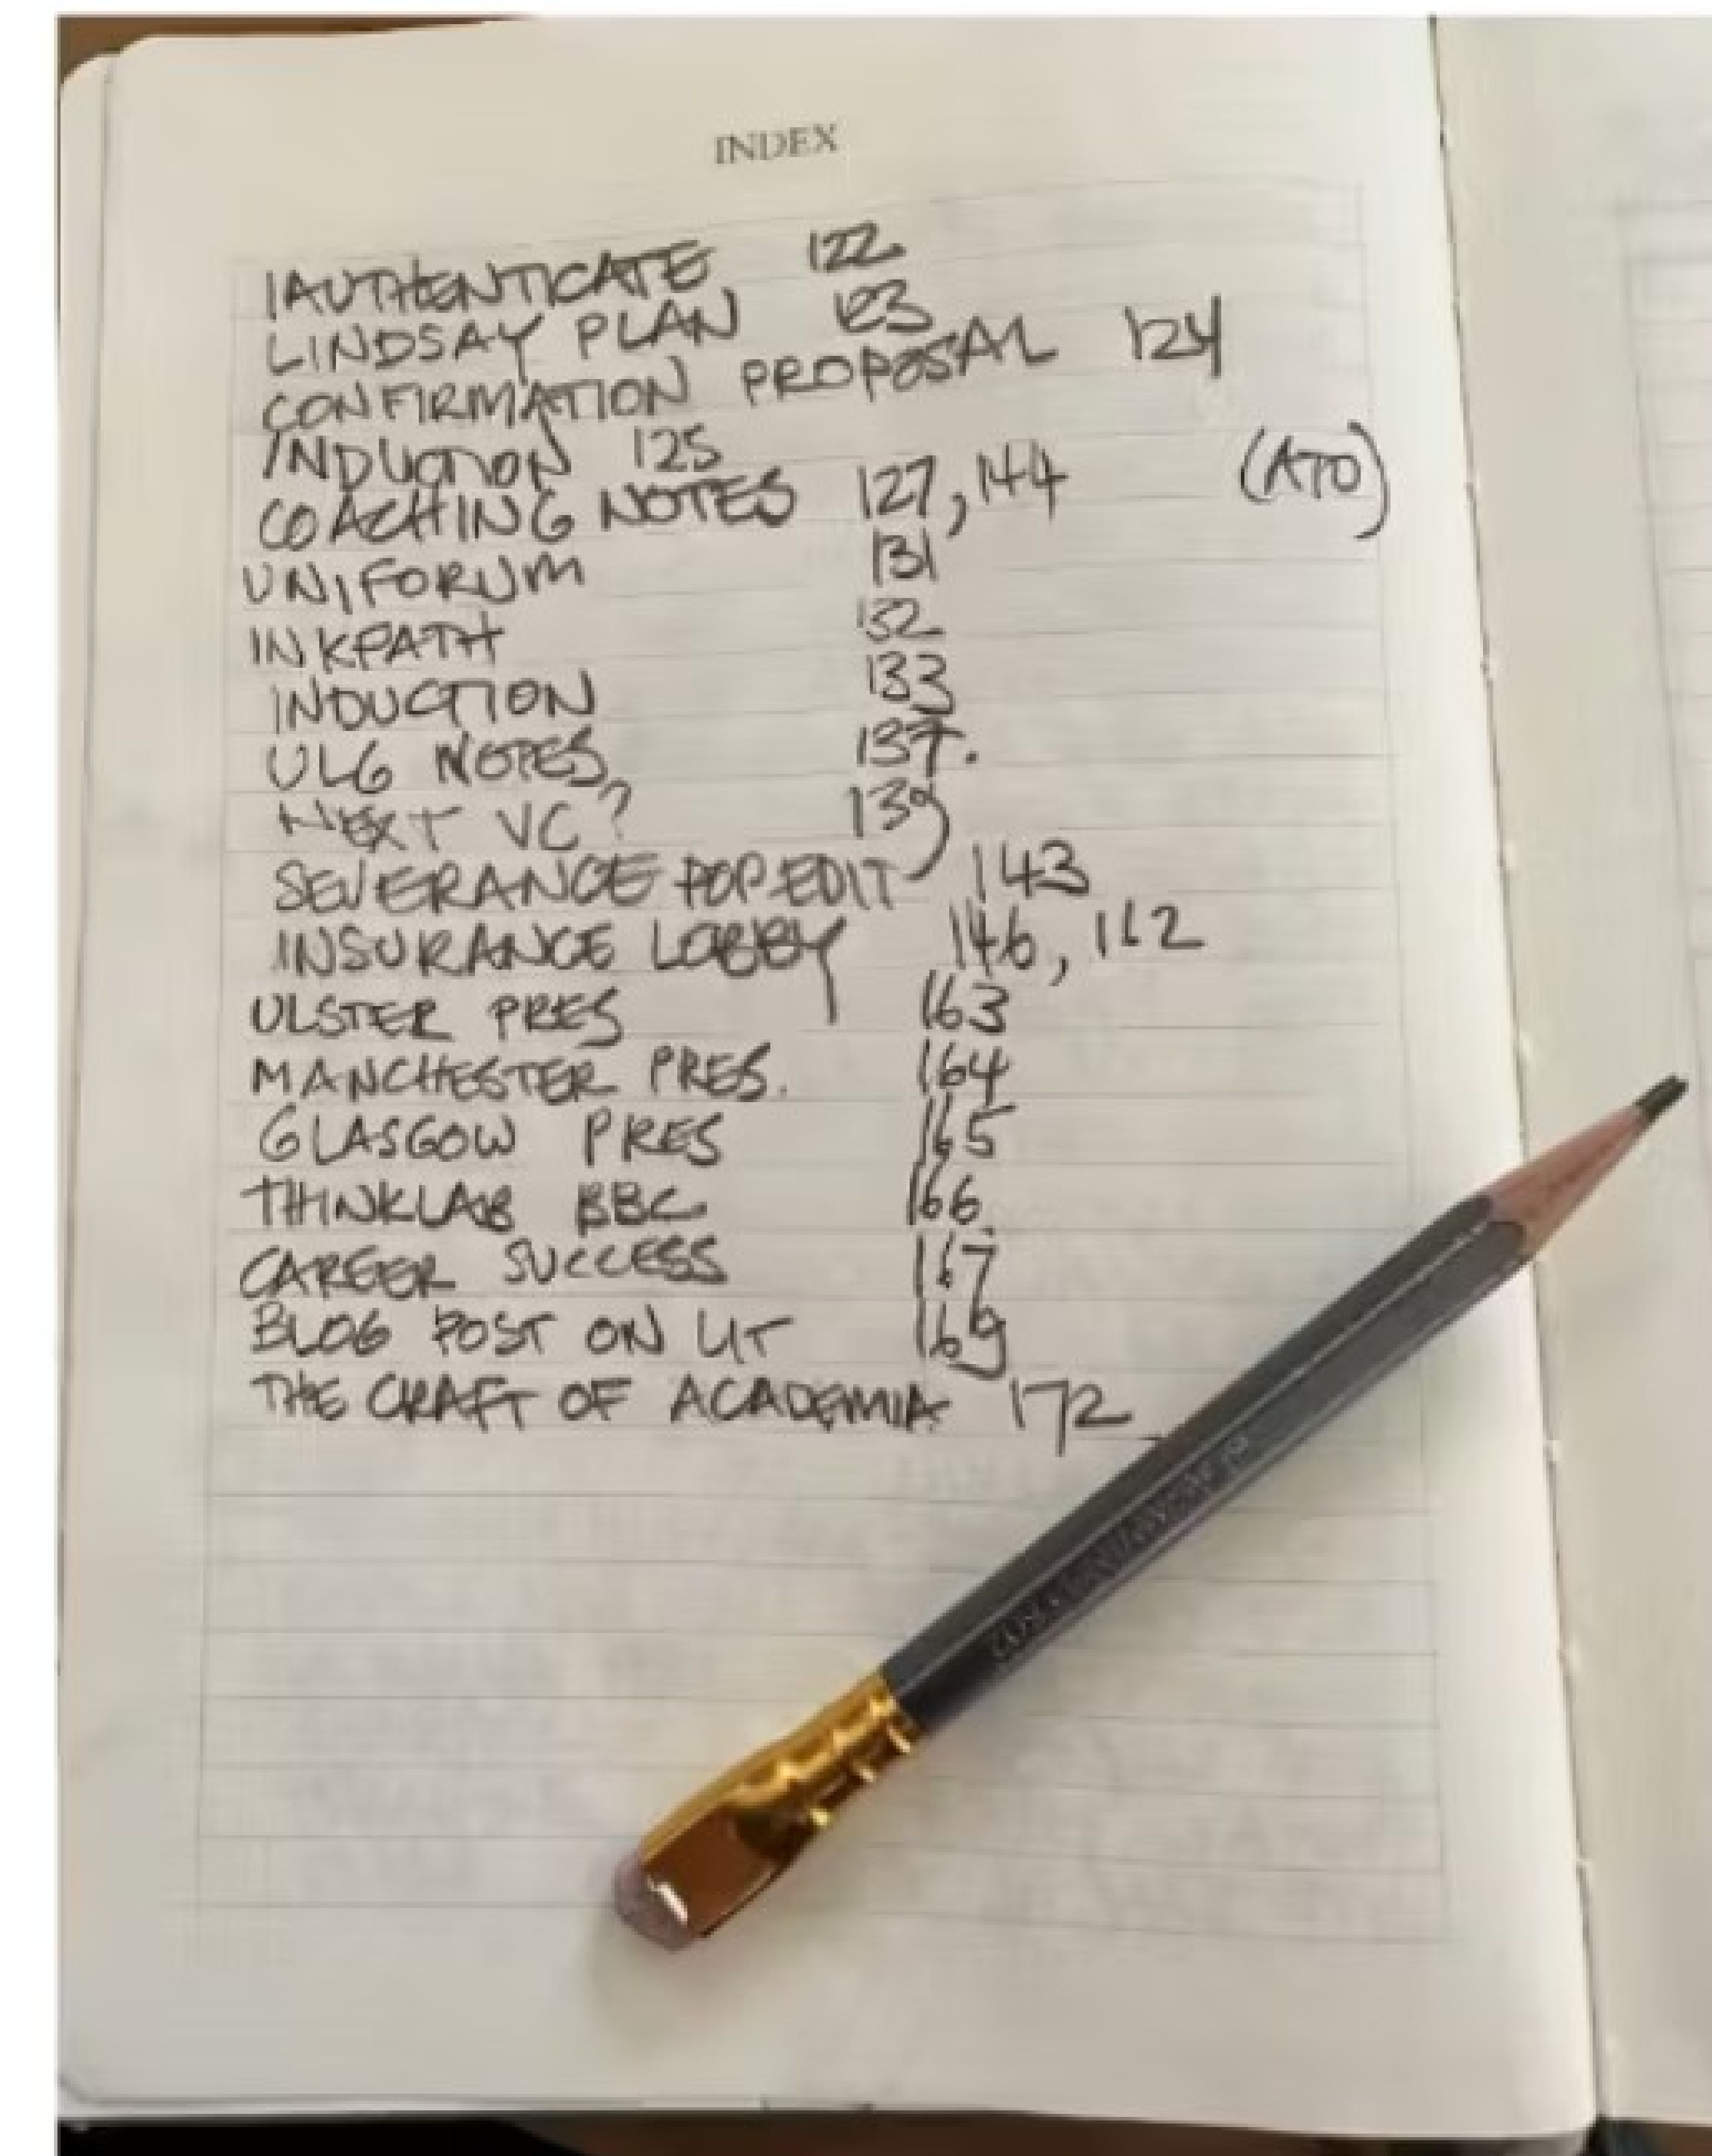 INDEX
IAUTHENTICATE 122
LINDSAY PLAN 123
CONFIRMATION PROPOSAL 124
INDUCTION 125
COACHING NOTES 127, 144 (ATO)
UNIFORUM 131
INKPATH 132
INDUCTION 133
ULG NOTES 137.
NEXT VC? 139
SEVERANCE POP.EDIT 143
INSURANCE LOBBY 146, 162
ULSTER PRES 163
MANCHESTER PRES. 164
GLASGOW PRES 165
THINKLAB BBC 166.
CAREER SUCCESS 167
BLOG POST ON LIT 169
THE CRAFT OF ACADEMIA 172